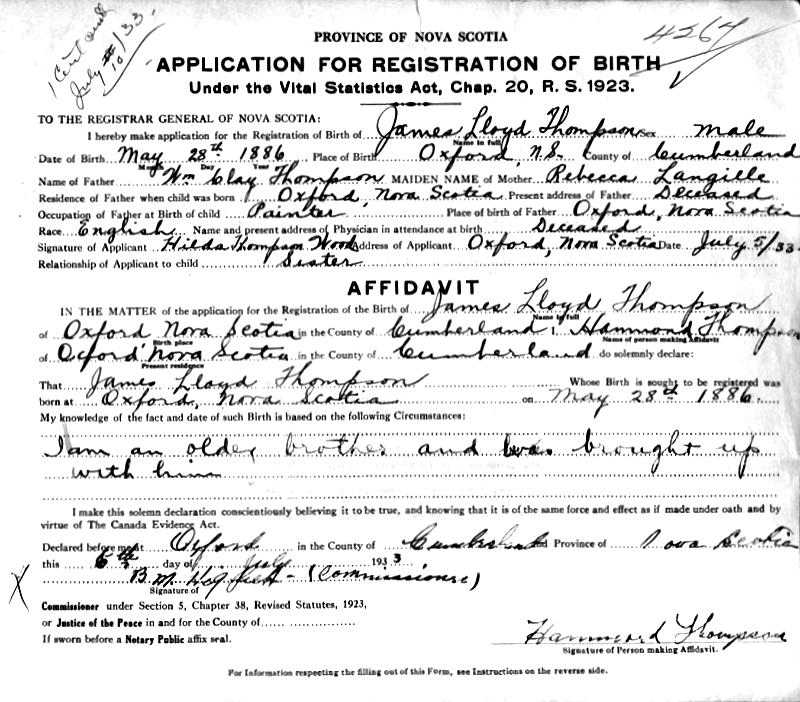 1 Cert issued
July 10/33
4267
PROVINCE OF NOVA SCOTIA
APPLICATION FOR REGISTRATION OF BIRTH
Under the Vital Statistics Act, Chap. 20, R. S. 1923.
TO THE REGISTRAR GENERAL OF NOVA SCOTIA:
I hereby make application for the Registration of Birth of James Lloyd Thompson Sex male
Name in full
Date of Birth May 28th 1886 Place of Birth Oxford, N.S. County of Cumberland
Month Day Year
Name of Father Wm Clay Thompson MAIDEN NAME of Mother Rebecca Langille
Residence of Father when child was born Oxford, Nova Scotia Present address of Father Deceased
Occupation of Father at Birth of child Painter Place of birth of Father Oxford, Nova Scotia
Race English Name and present address of Physician in attendance at birth Deceased
Signature of Applicant Hilda Thompson Wood Address of Applicant Oxford, Nova Scotia Date July 5/33
Relationship of Applicant to child Sister
AFFIDAVIT
IN THE MATTER of the application for the Registration of the Birth of James Lloyd Thompson
Name in full
of Oxford Nova Scotia in the County of Cumberland, I, Hammond Thompson
Birth place Name of person making Affidavit
of Oxford Nova Scotia in the County of Cumberland do solemnly declare:
Present residence
That James Lloyd Thompson Whose Birth is sought to be registered was
born at Oxford, Nova Scotia on May 28th 1886.
My knowledge of the fact and date of such Birth is based on the following Circumstances:
I am an older brother and was brought up
with him
I make this solemn declaration conscientiously believing it to be true, and knowing that it is of the same force and effect as if made under oath and by
virtue of The Canada Evidence Act.
Declared before me at Oxford in the County of Cumberland and Province of Nova Scotia
this 6th day of July 1933
B. M. (Commissioner)
Signature of
X
Commissioner under Section 5, Chapter 38, Revised Statutes, 1923,
or Justice of the Peace in and for the County of
If sworn before a Notary Public affix seal.
Hammond Thompson
Signature of Person making Affidavit.
For Information respecting the filling out of this Form, see Instructions on the reverse side.